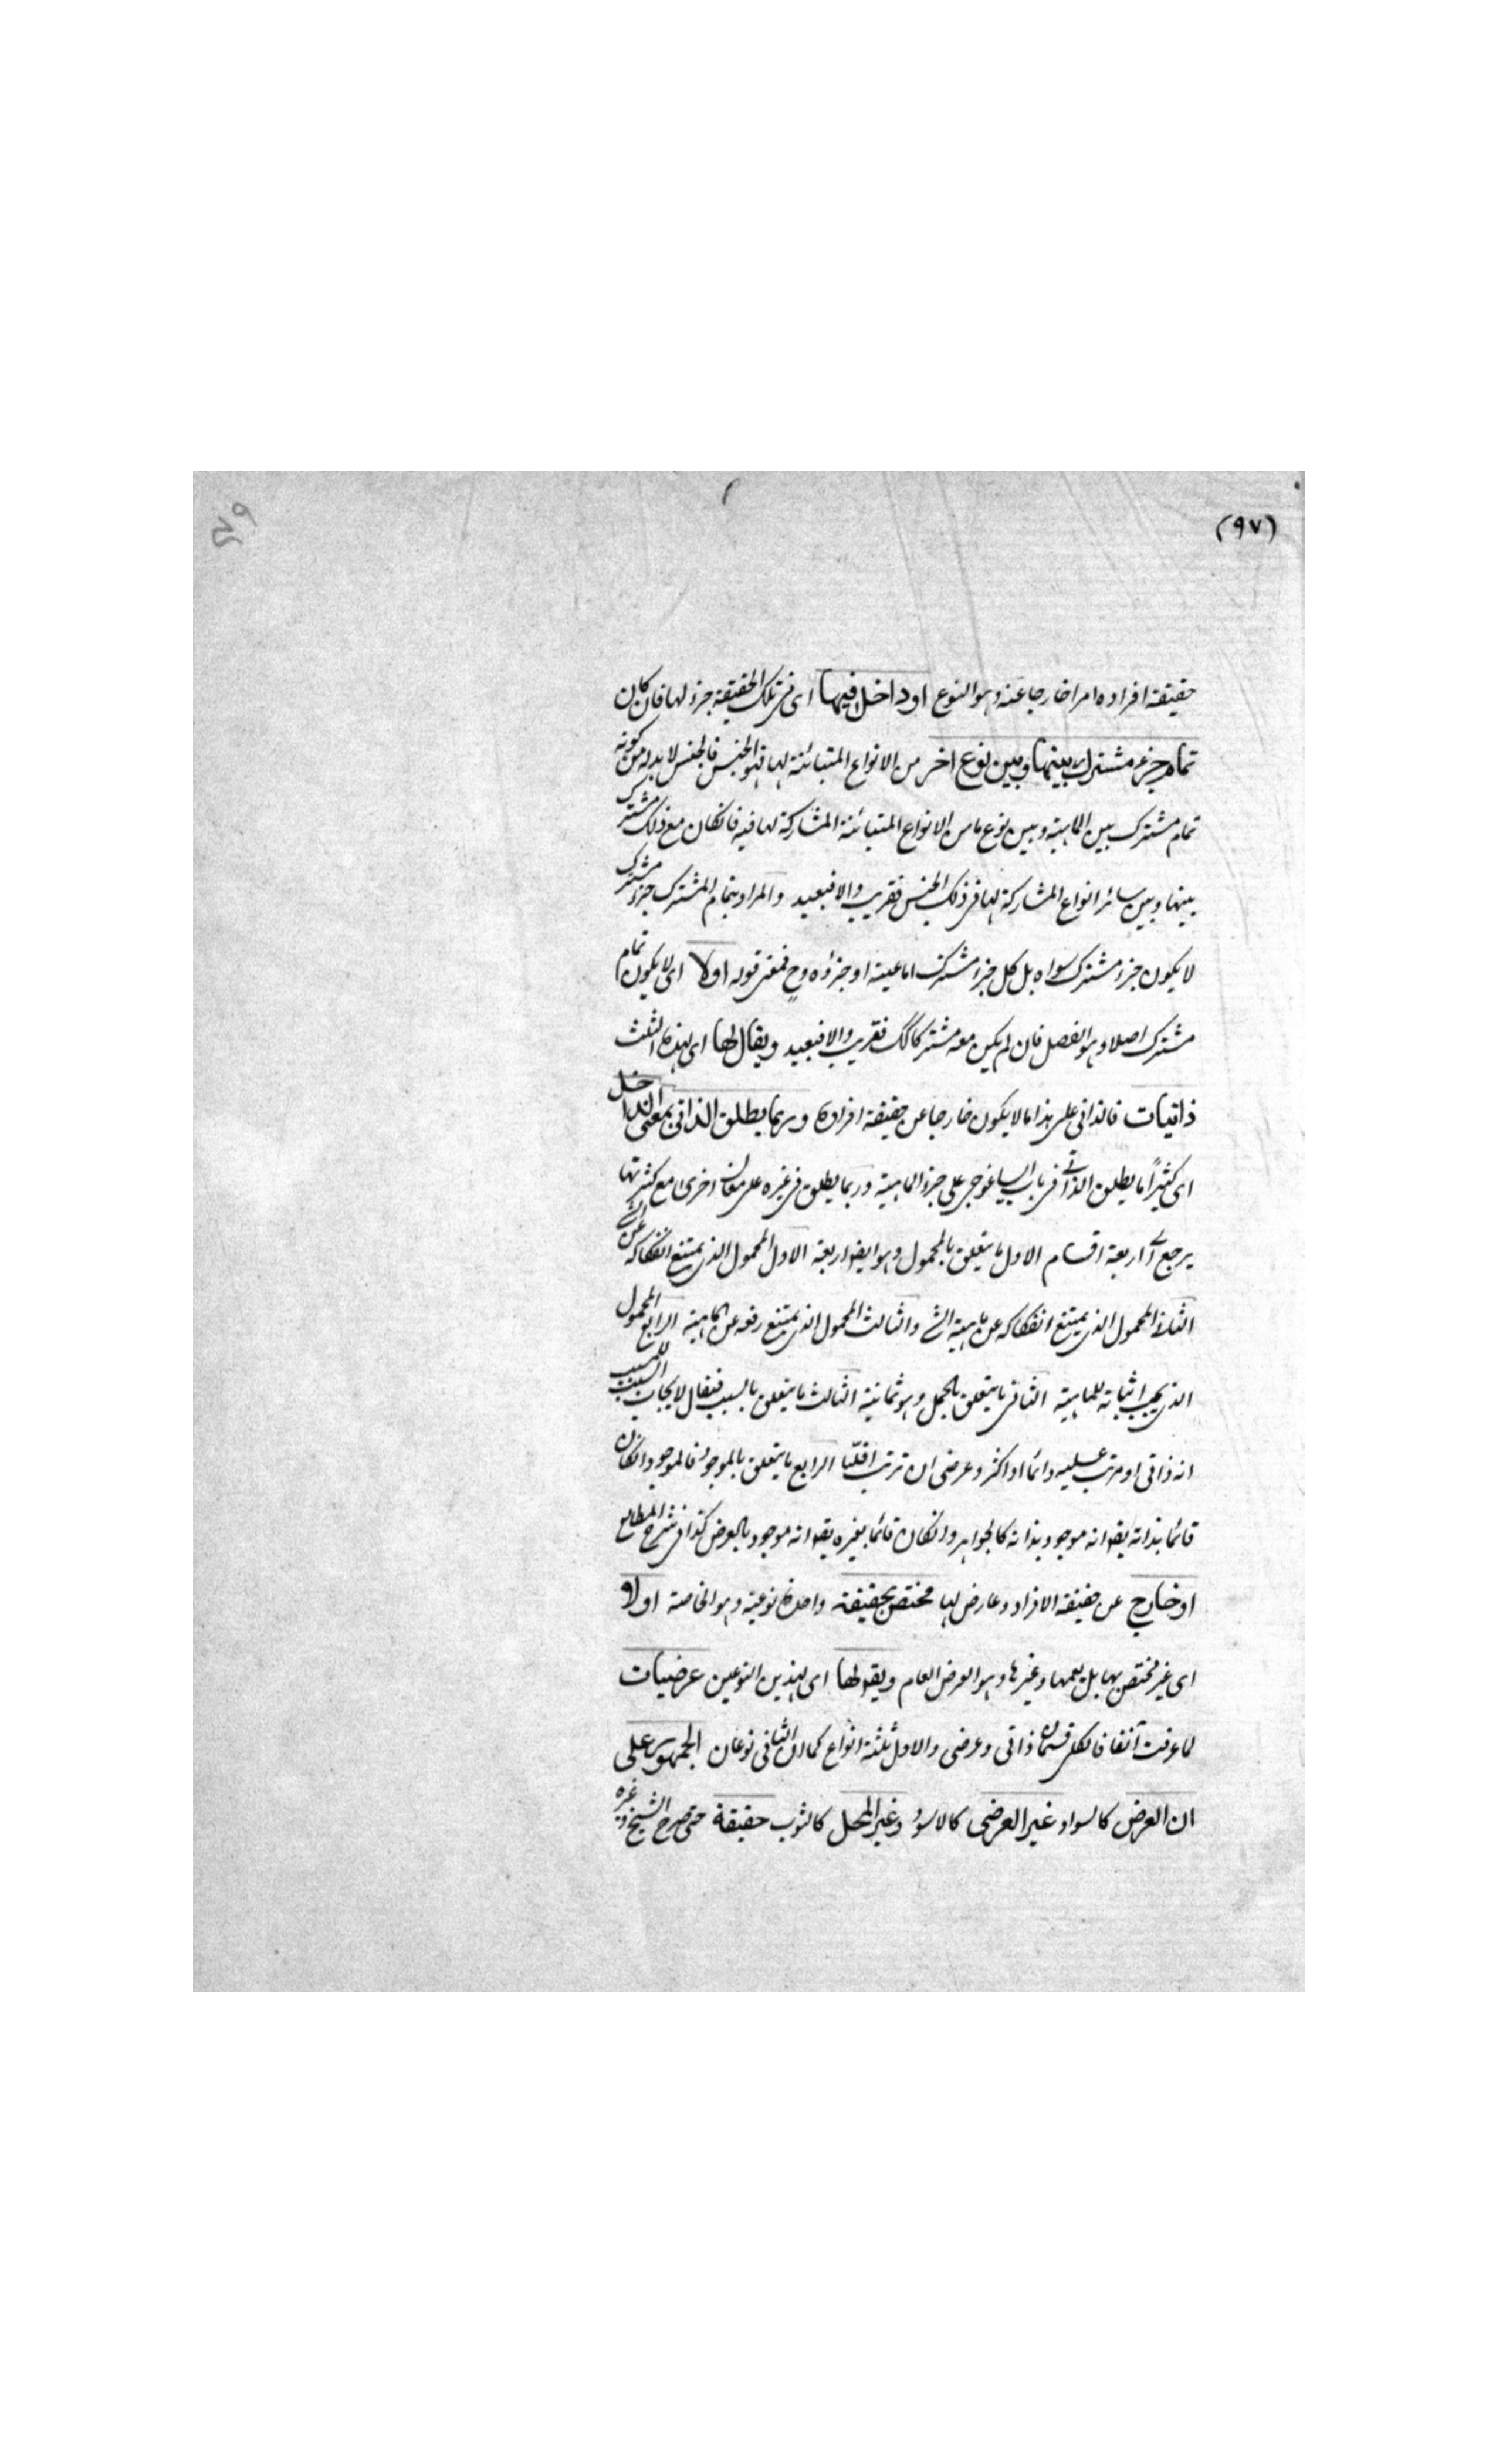 (٩٧)
حقيقة افراده امرا خارجا عنه وهو النوع او داخل فيها اى فى تلك الحقيقة جزء لها فان كان
تمام جزء مشترك بينها وبين نوع اخر من الانواع المتبائنة لها فهو الجنس فالجنس لا بد له من كونه
تمام مشترك بين الماهية وبين نوع ما من الانواع المتبائنة المشاركة لها فيه فانكان مع ذلك مشترك
بينها وبين سائر انواع المشاركة لها فى ذلك الجنس فقريب والا فبعيد والمراد بتمام المشترك جزء مشترك
لا يكون جزء مشترك سواه بل كل جزء مشترك اما عينه او جزؤه وح فمعنى قوله اولا اى لا يكون تمام
مشترك اصلا وهو الفصل فان لم يكن معه مشتركا لك فقريب والا فبعيد ويقال لها اى لهذه الثلث
ذاتيات فالذاتى على هذا ما لا يكون خارجا عن حقيقة افراده وربما يطلق الذاتى بمعنى الداخل
اى كثيراً ما يطلق الذاتى فى باب ايساغوجى على جزء الماهية وربما يطلق فى غيره على معان اخرى مع كثرتها
يرجع الى اربعة اقسام الاول ما يتعلق بالمحمول وهو ايضا اربعة الاول المحمول الذى يمتنع انفكاكه عن الشى
الثانى المحمول الذى يمتنع انفكاكه عن ماهية الشى والثالث المحمول الذى يمتنع رفعه عن الماهية الرابع المحمول
الذى يجب اثباته للماهية الثانى ما يتعلق بالحمل وهو ثمانية الثالث ما يتعلق بالسبب فيقال لايجاب السبب للمسبب
انه ذاتى ان ترتب عليه دائما او اكثر وعرضى ان ترتب اقليا الرابع ما يتعلق بالموجود فالموجود انكان
قائما بذاته يقو انه موجود بذاته كالجواهر وانكان قائما بغيره يقو انه موجود بالعرض كذا فى شرح المطالع
او خارج عن حقيقة الافراد وعارض لها مختص بحقيقة واحدة نوعية وهو الخاصة اولا
اى غير مختص بها بل يعمها وغيرها وهو العرض العام ويقو لها اى لهذين النوعين عرضيات
لما عرفت آنفا فالكلى قسمان ذاتى وعرضى والاول ثلثة انواع كما ان الثانى نوعان الجمهور على
ان العرض كالسواد غير العرضى كالاسود وغير المحل كالثوب حقيقة حتى صرح الشيخ وغيره